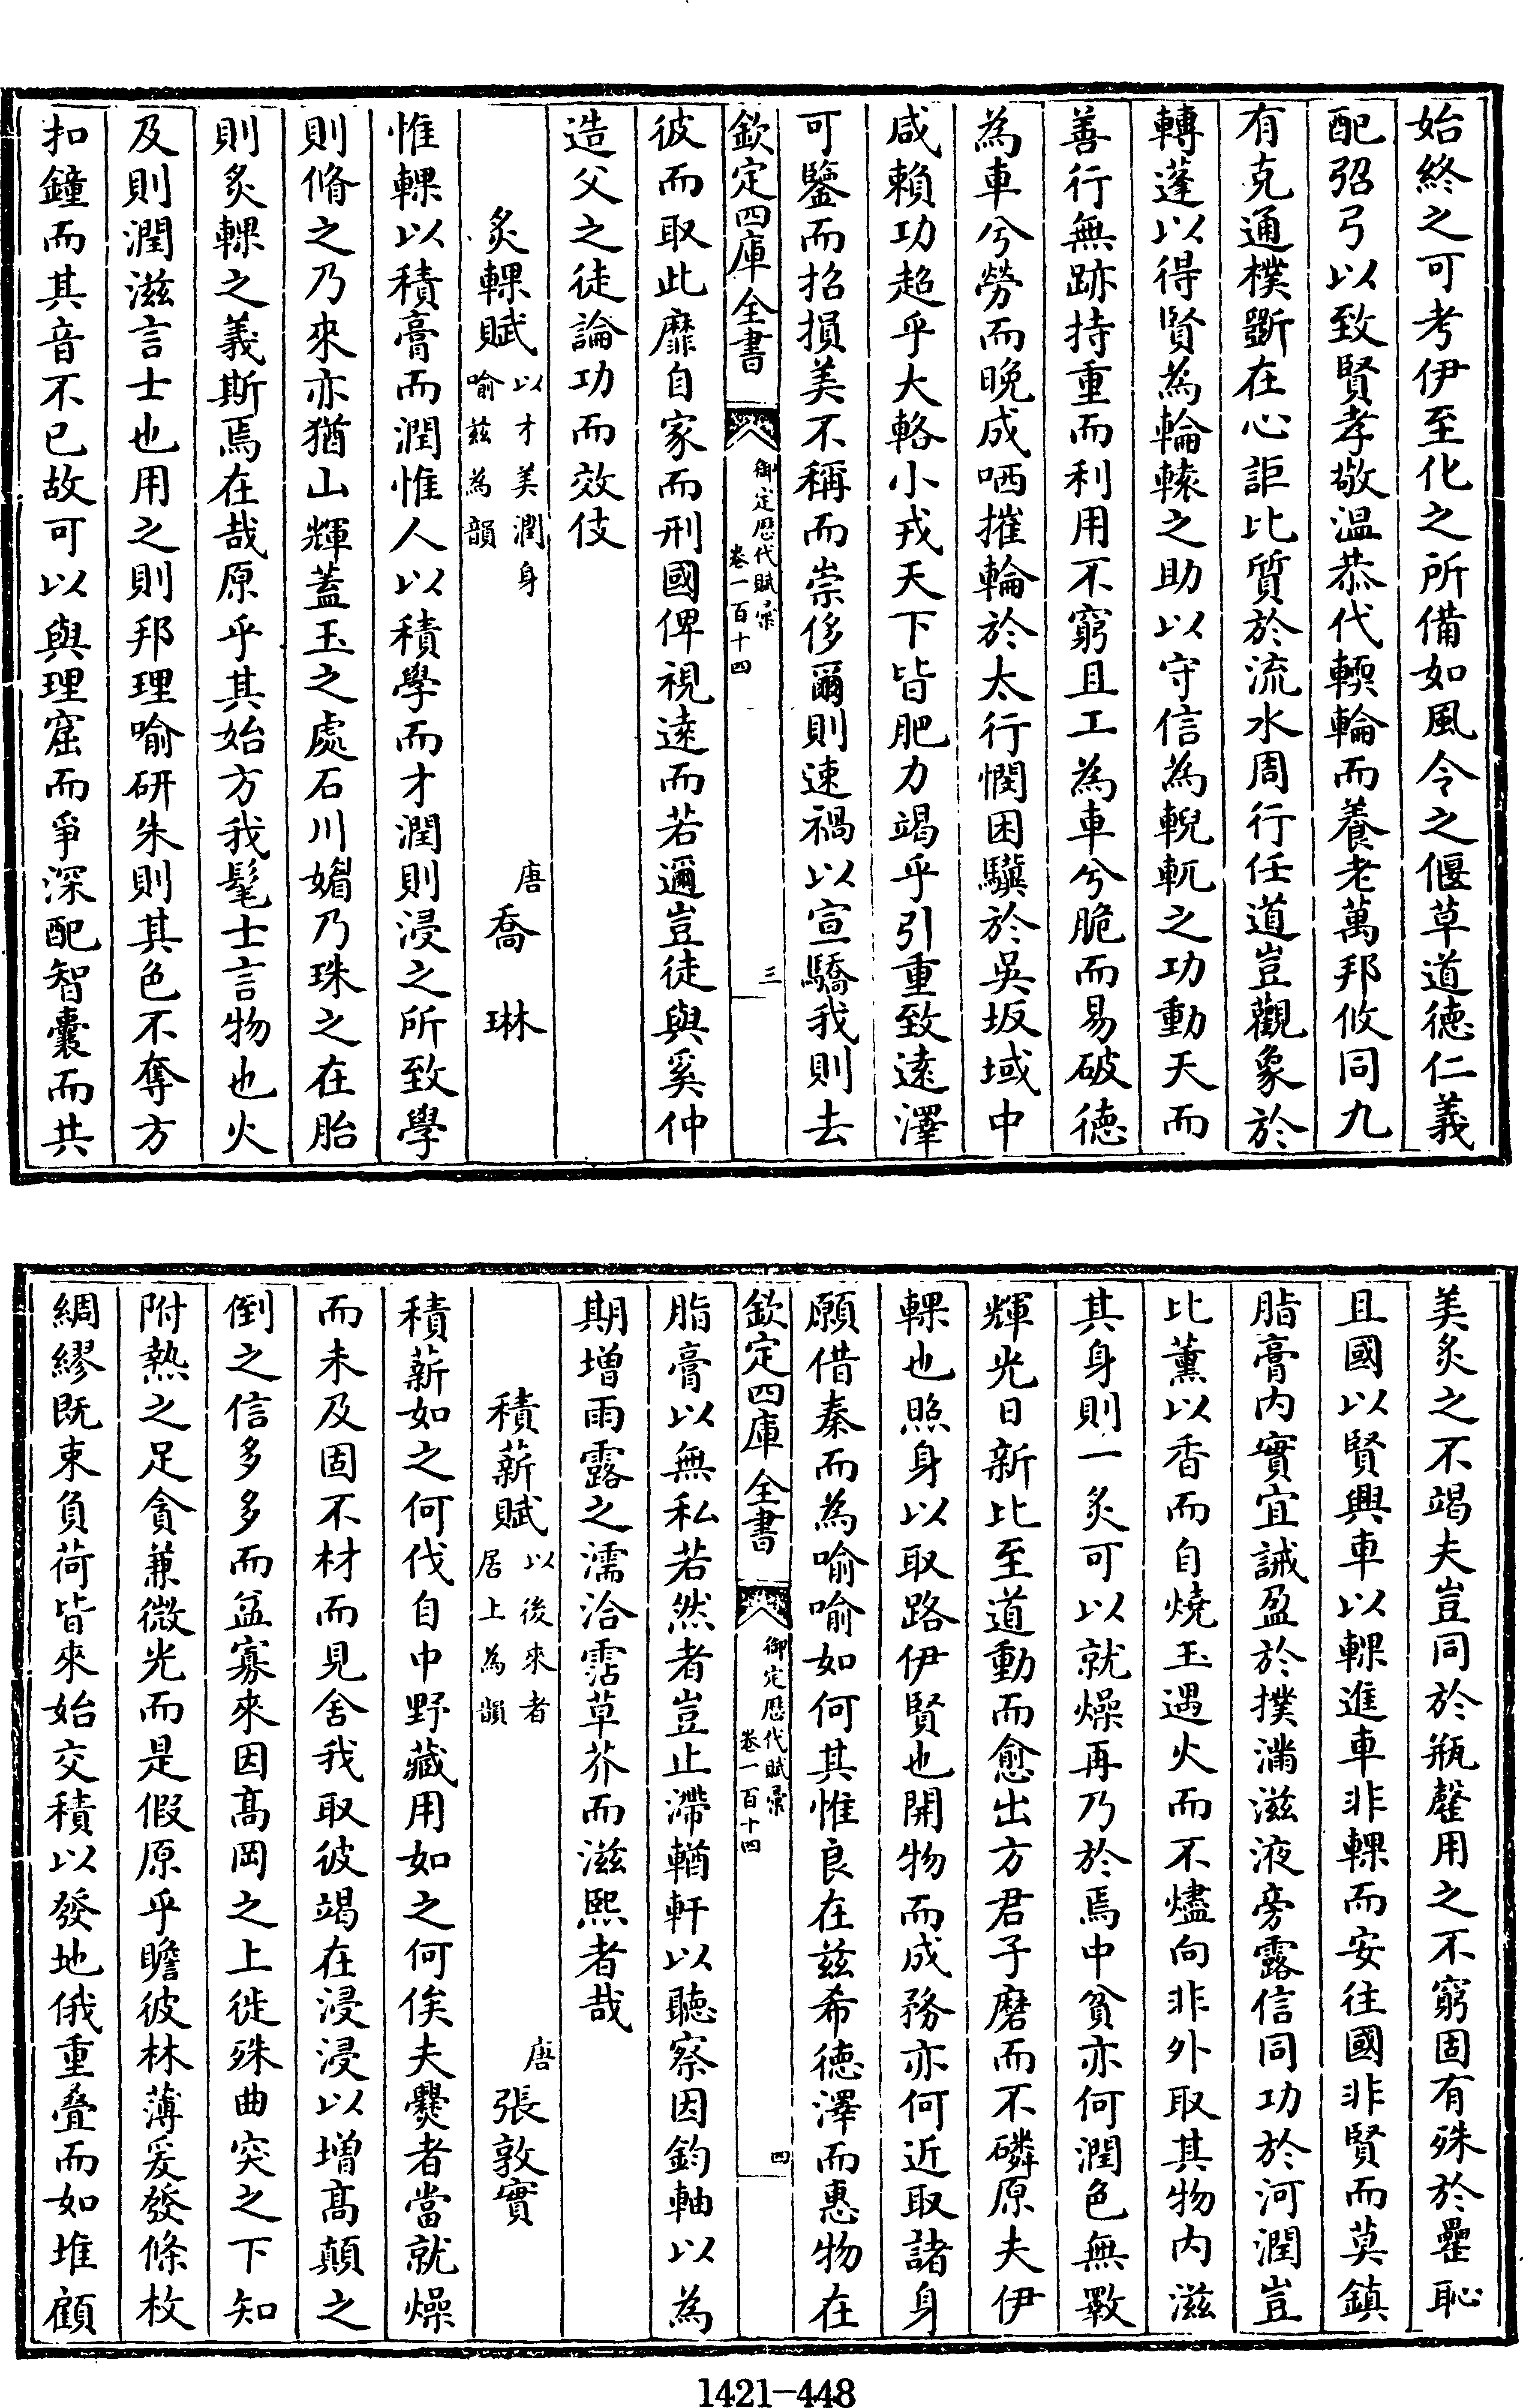 始終之可考伊至化之所備如風令之偃草道徳仁義
配弨弓以致賢孝敬温恭代輭輪而養老萬邦攸同九
有克通樸斵在心詎比質於流水周行任道豈觀象於
轉蓬以得賢為輪轅之助以守信為輗軏之功動天而
善行無跡持重而利用不窮且工為車兮脆而易破徳
為車兮勞而晩成哂摧輪於太行憫困驥於吳坂域中
咸賴功超乎大輅小戎天下皆肥力竭乎引重致逺澤
可鑒而招損美不稱而崇侈爾則速禍以宣驕我則去
欽定四庫全書
御定歴代賦彙
卷一百十四
三
彼而取此靡自家而刑國俾視逺而若邇豈徒與奚仲
造父之徒論功而效伎
炙輠賦
以才美潤身
喻茲為韻
唐
喬琳
惟輠以積膏而潤惟人以積學而才潤則浸之所致學
則脩之乃來亦猶山輝蓋玉之處石川媚乃珠之在胎
則炙輠之義斯焉在哉原乎其始方我髦士言物也火
及則潤滋言士也用之則邦理喻研朱則其色不奪方
扣鐘而其音不已故可以與理窟而爭深配智囊而共
美炙之不竭夫豈同於瓶罄用之不窮固有殊於罍恥
且國以賢興車以輠進車非輠而安往國非賢而莫鎮
脂膏内實宜誡盈於撲滿滋液旁露信同功於河潤豈
比薰以香而自燒玉遇火而不燼向非外取其物内滋
其身則一炙可以就燥再乃於焉中貧亦何潤色無斁
輝光日新比至道動而愈出方君子磨而不磷原夫伊
輠也照身以取路伊賢也開物而成務亦何近取諸身
願借秦而為喻喻如何其惟良在茲希徳澤而惠物在
欽定四庫全書
御定歴代賦彙
卷一百十四
四
脂膏以無私若然者豈止滯輶軒以聽察因鈞軸以為
期増雨露之濡洽霑草芥而滋熙者哉
積薪賦
以後來者
居上為韻
唐
張敦實
積薪如之何伐自中野藏用如之何俟夫爨者當就燥
而未及固不材而見舍我取彼竭在浸浸以増髙顛之
倒之信多多而益寡來因髙岡之上徙殊曲突之下知
附熱之足貪兼微光而是假原乎瞻彼林薄爰發條枚
綢繆既束負荷皆來始交積以發地俄重疊而如堆顧
1421-448